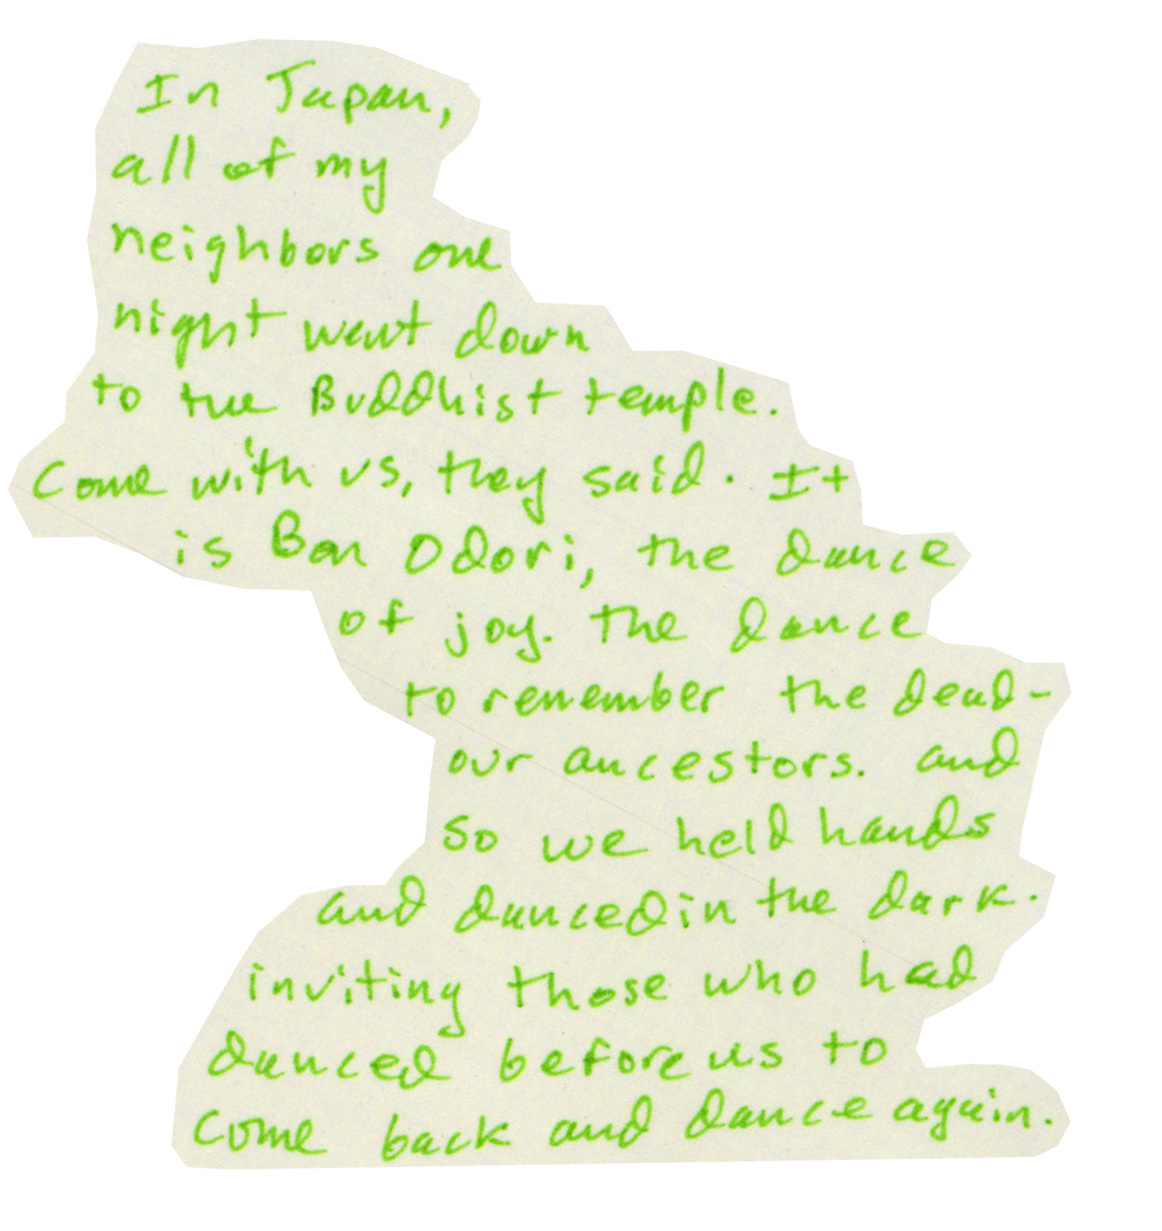 In Japan,
all of my
neighbors one
night went down
to the Buddhist temple.
Come with us, they said. It
is Bon Odori, the dance
of joy. The dance
to remember the dead-
our ancestors. and
so we held hands
and danced in the dark.
inviting those who had
danced before us to
come back and dance again.